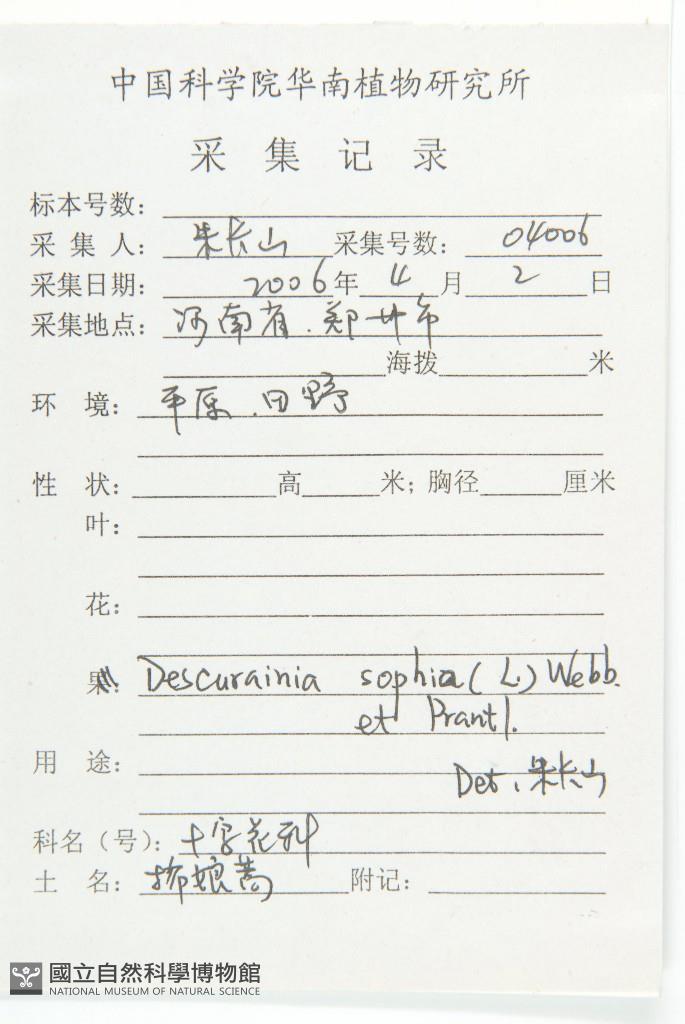 中国科学院华南植物研究所
采 集 记 录
标本号数：
采 集 人： 朱长山 采集号数： 04006
采集日期： 2006年 4 月 2 日
采集地点： 河南省．郑州市
海拨 米
环 境： 平原．田野
性 状： 高 米；胸径 厘米
叶：
花：
果： Descurainia sophia (L.) Webb.
et Prantl.
用 途：
Det. 朱长山
科名（号）： 十字花科
土 名： 播娘蒿 附记：
國立自然科學博物館
NATIONAL MUSEUM OF NATURAL SCIENCE